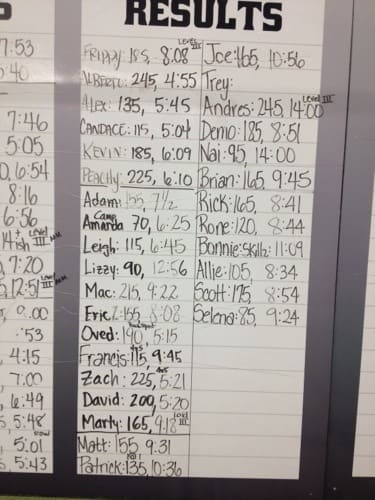 RESULTS
7:53
5:40
7:46
5:05
6:54
8:16
6:56
Level
III
7:20
Level
III
12:51
:53
4:15
7:00
6:49
5:48
5:01
5:43
FRIPPY: 185, 8:08 Level III
ALBERTO: 245, 4:55
ALEX: 135, 5:45
CANDACE: 115, 5:04
KEVIN: 185, 6:09
PEACHY: 225, 6:10
Adam: 155, 7 1/2
Camp
Amanda 70, 6:25
Leigh: 115, 6:45
Lizzy: 90, 12:56
Mac: 215, 9:22
Eric Z: 155, 8:08
Oved: 190, 5:15
Francis: 115, 9:45
Zach: 225, 5:21
David: 200, 5:20
Marty: 165, 9:18 Level III
Matt: 155 9:31
Patrick: 135, 10:36
Joe: 165, 10:56
Trey:
Andres: 245, 14:00 Level III
Demo: 185, 8:51
Nai: 95, 14:00
Brian: 165, 9:45
Rick: 165, 8:41
Rone: 120, 8:44
Bonnie: Skillz: 11:09
Allie: 105, 8:34
Scott: 175, 8:54
Selena: 85, 9:24